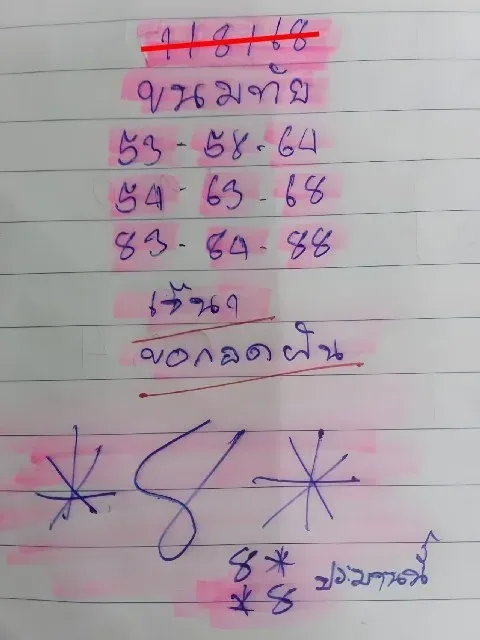 118168
ขนมทัย
53 - 58 - 64
54 - 63 - 68
83 - 84 - 88
ขอกอดฝัน
* 8 *
8*
*8 ประมานนี้